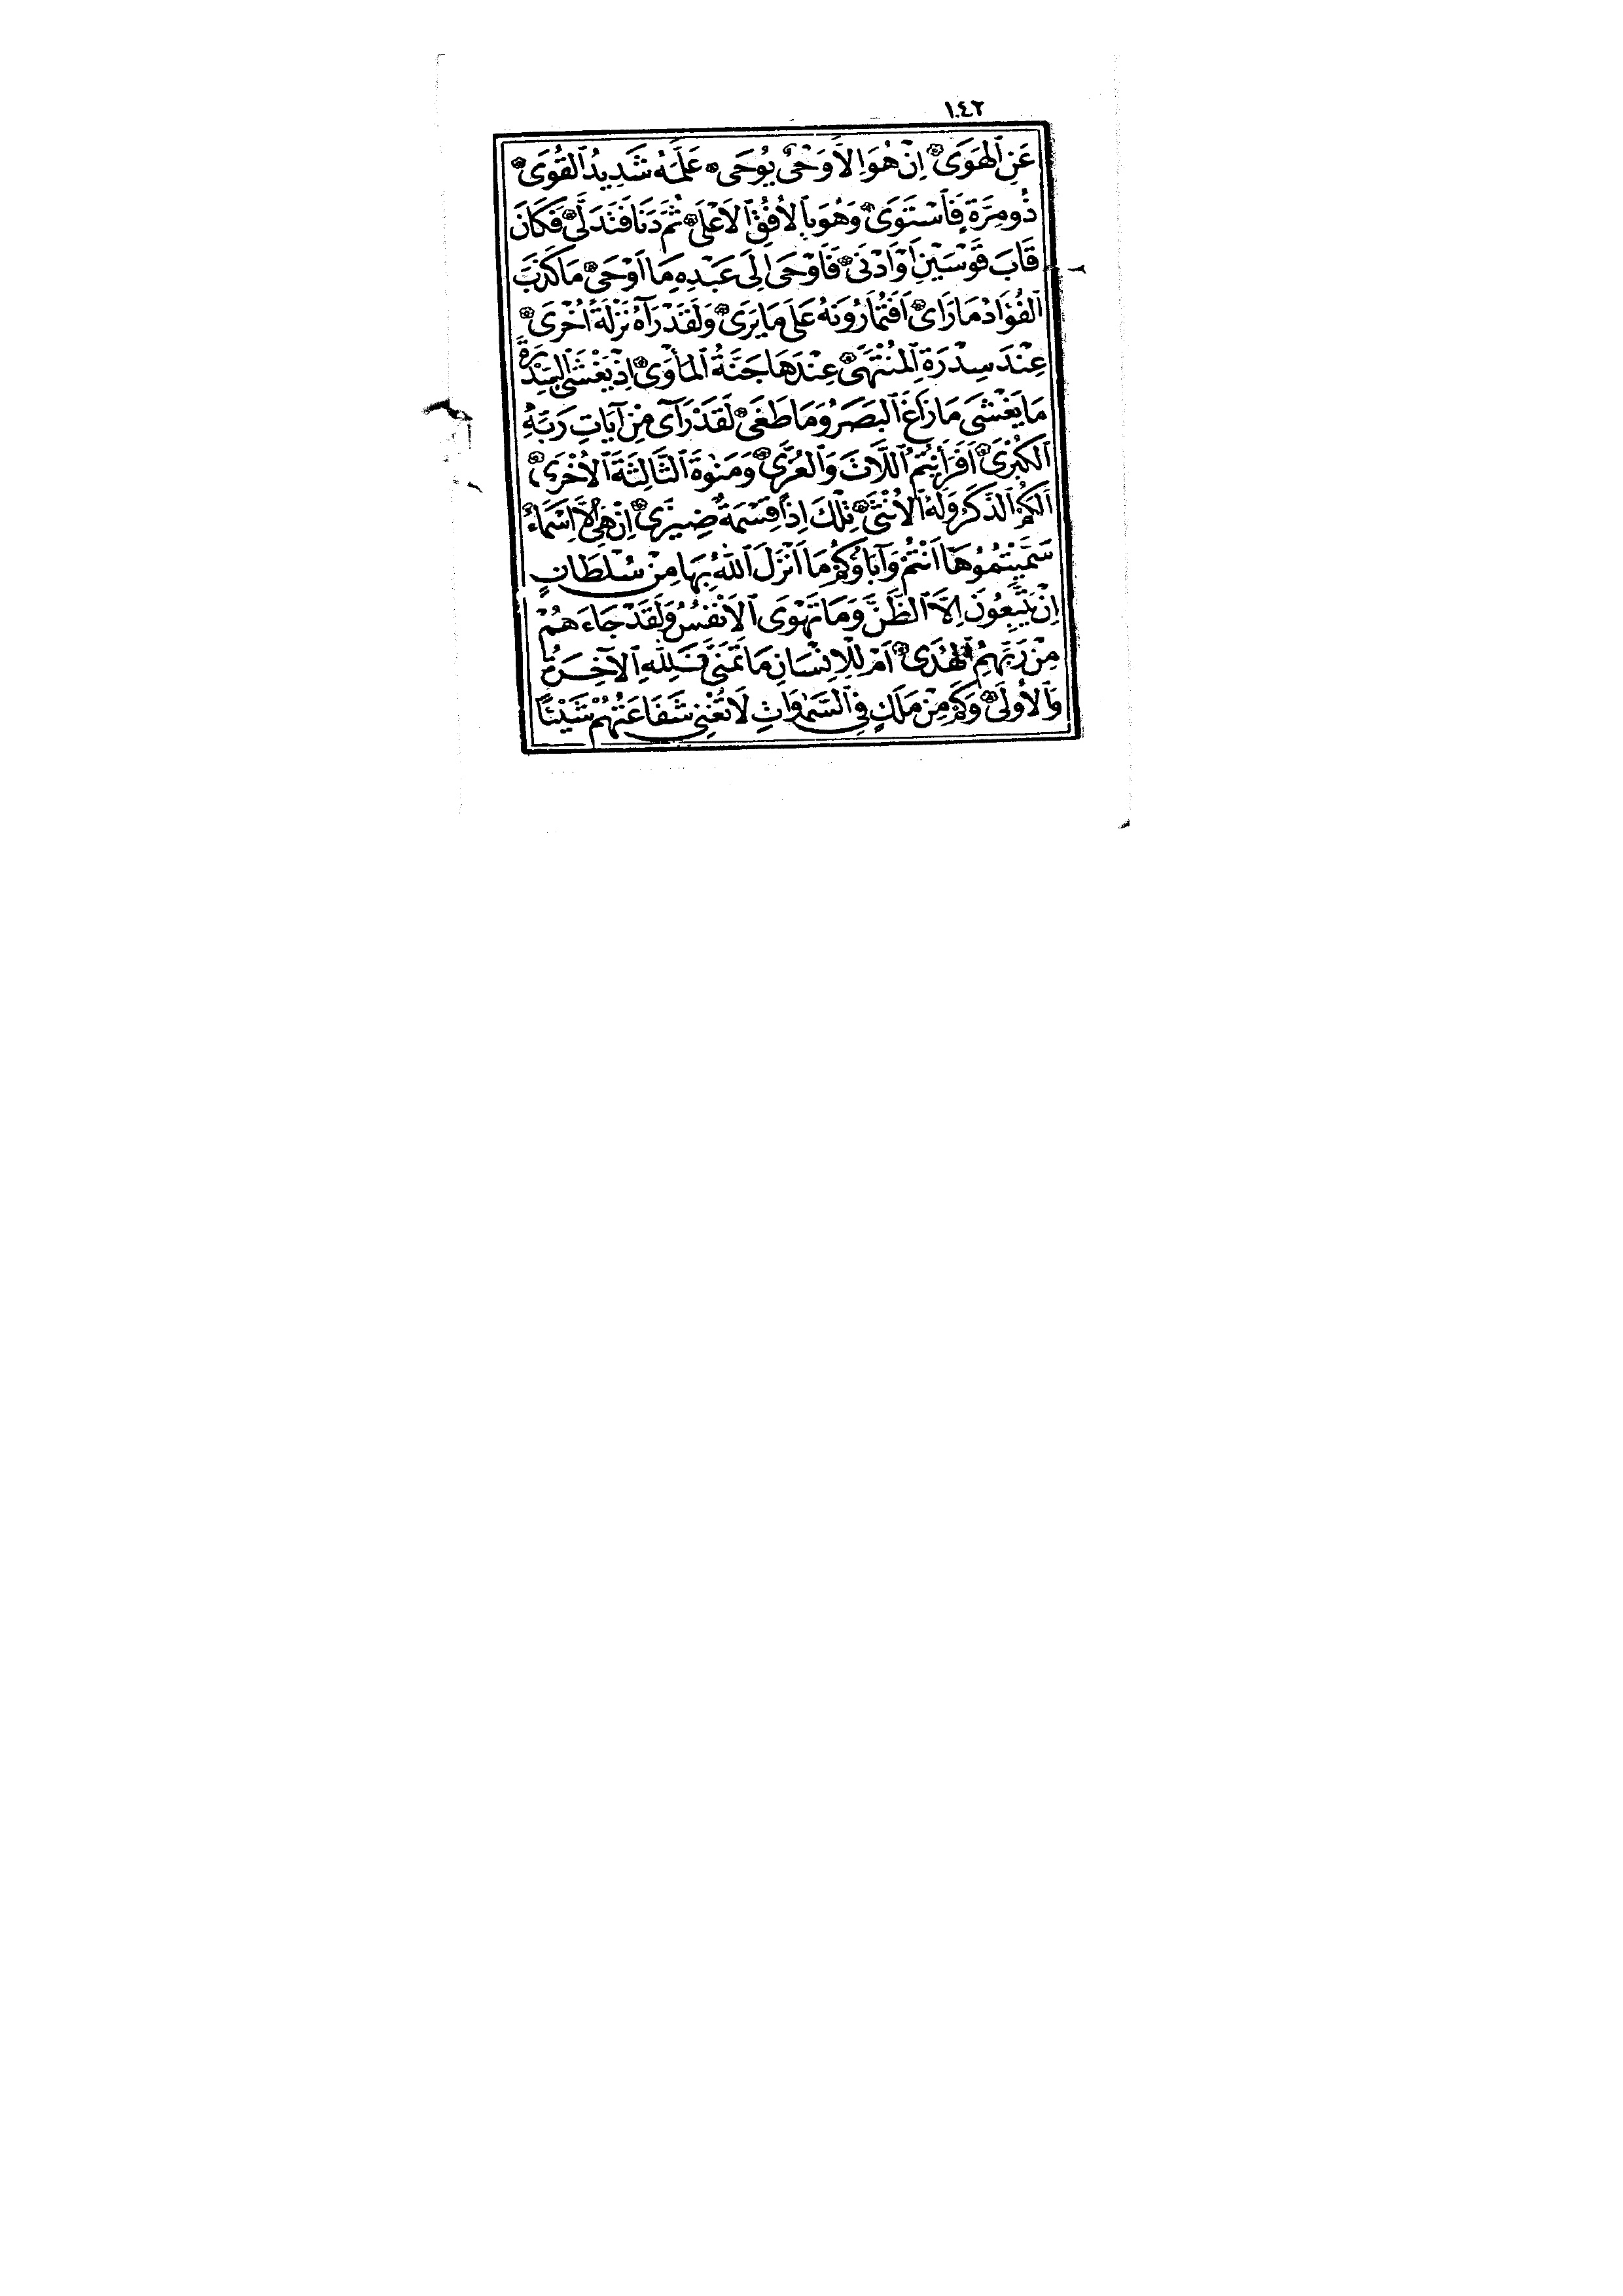 ١٠٤٢
عَنِ ٱلْهَوَىٰ ۝ اِنْ هُوَ اِلَّا وَحْىٌ يُوحَىٰ ۝ عَلَّمَهُ شَدِيدُ ٱلْقُوَىٰ ۝
ذُو مِرَّةٍ فَٱسْتَوَىٰ ۝ وَهُوَ بِٱلْاُفُقِ ٱلْاَعْلَىٰ ۝ ثُمَّ دَنَا فَتَدَلَّىٰ ۝ فَكَانَ
قَابَ قَوْسَيْنِ اَوْ اَدْنَىٰ ۝ فَاَوْحَىٰ اِلَىٰ عَبْدِهِ مَا اَوْحَىٰ ۝ مَا كَذَبَ
ٱلْفُؤَادُ مَا رَاَىٰ ۝ اَفَتُمَارُونَهُ عَلَىٰ مَا يَرَىٰ ۝ وَلَقَدْ رَآهُ نَزْلَةً اُخْرَىٰ ۝
عِنْدَ سِدْرَةِ ٱلْمُنْتَهَىٰ ۝ عِنْدَهَا جَنَّةُ ٱلْمَأْوَىٰ ۝ اِذْ يَغْشَى ٱلسِّدْرَةَ
مَا يَغْشَىٰ مَا زَاغَ ٱلْبَصَرُ وَمَا طَغَىٰ ۝ لَقَدْ رَآىٰ مِنْ آيَاتِ رَبِّهِ
ٱلْكُبْرَىٰ ۝ اَفَرَاَيْتُمُ ٱللَّاتَ وَٱلْعُزَّىٰ ۝ وَمَنٰوةَ ٱلثَّالِثَةَ ٱلْاُخْرَىٰ ۝
اَلَكُمُ ٱلذَّكَرُ وَلَهُ ٱلْاُنْثَىٰ ۝ تِلْكَ اِذًا قِسْمَةٌ ضِيزَىٰ ۝ اِنْ هِىَ اِلَّا اَسْمَاءٌ
سَمَّيْتُمُوهَا اَنْتُمْ وَآبَاؤُكُمْ مَا اَنْزَلَ ٱللّٰهُ بِهَا مِنْ سُلْطَانٍ
اِنْ يَتَّبِعُونَ اِلَّا ٱلظَّنَّ وَمَا تَهْوَى ٱلْاَنْفُسُ وَلَقَدْ جَاءَهُمْ
مِنْ رَبِّهِمُ ٱلْهُدَىٰ ۝ اَمْ لِلْاِنْسَانِ مَا تَمَنَّىٰ ۝ فَلِلّٰهِ ٱلْآخِرَةُ
وَٱلْاُولَىٰ ۝ وَكَمْ مِنْ مَلَكٍ فِى ٱلسَّمٰوَاتِ لَا تُغْنِى شَفَاعَتُهُمْ شَيْئًا